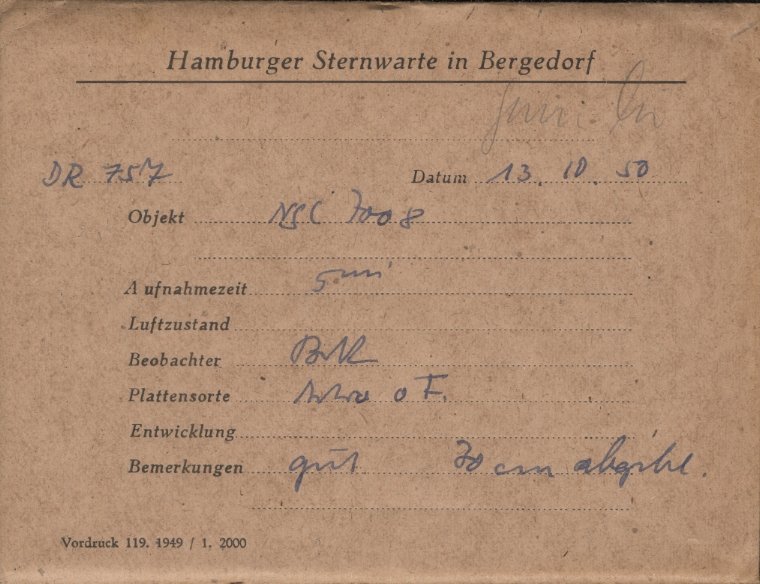 Hamburger Sternwarte in Bergedorf
DR 757 Datum 13. 10. 50
Objekt NGC 7008
Aufnahmezeit 5 min
Luftzustand
Beobachter
Plattensorte o F.
Entwicklung
Bemerkungen gut 70 cm abgebl.
Vordruck 119. 1949 / 1. 2000